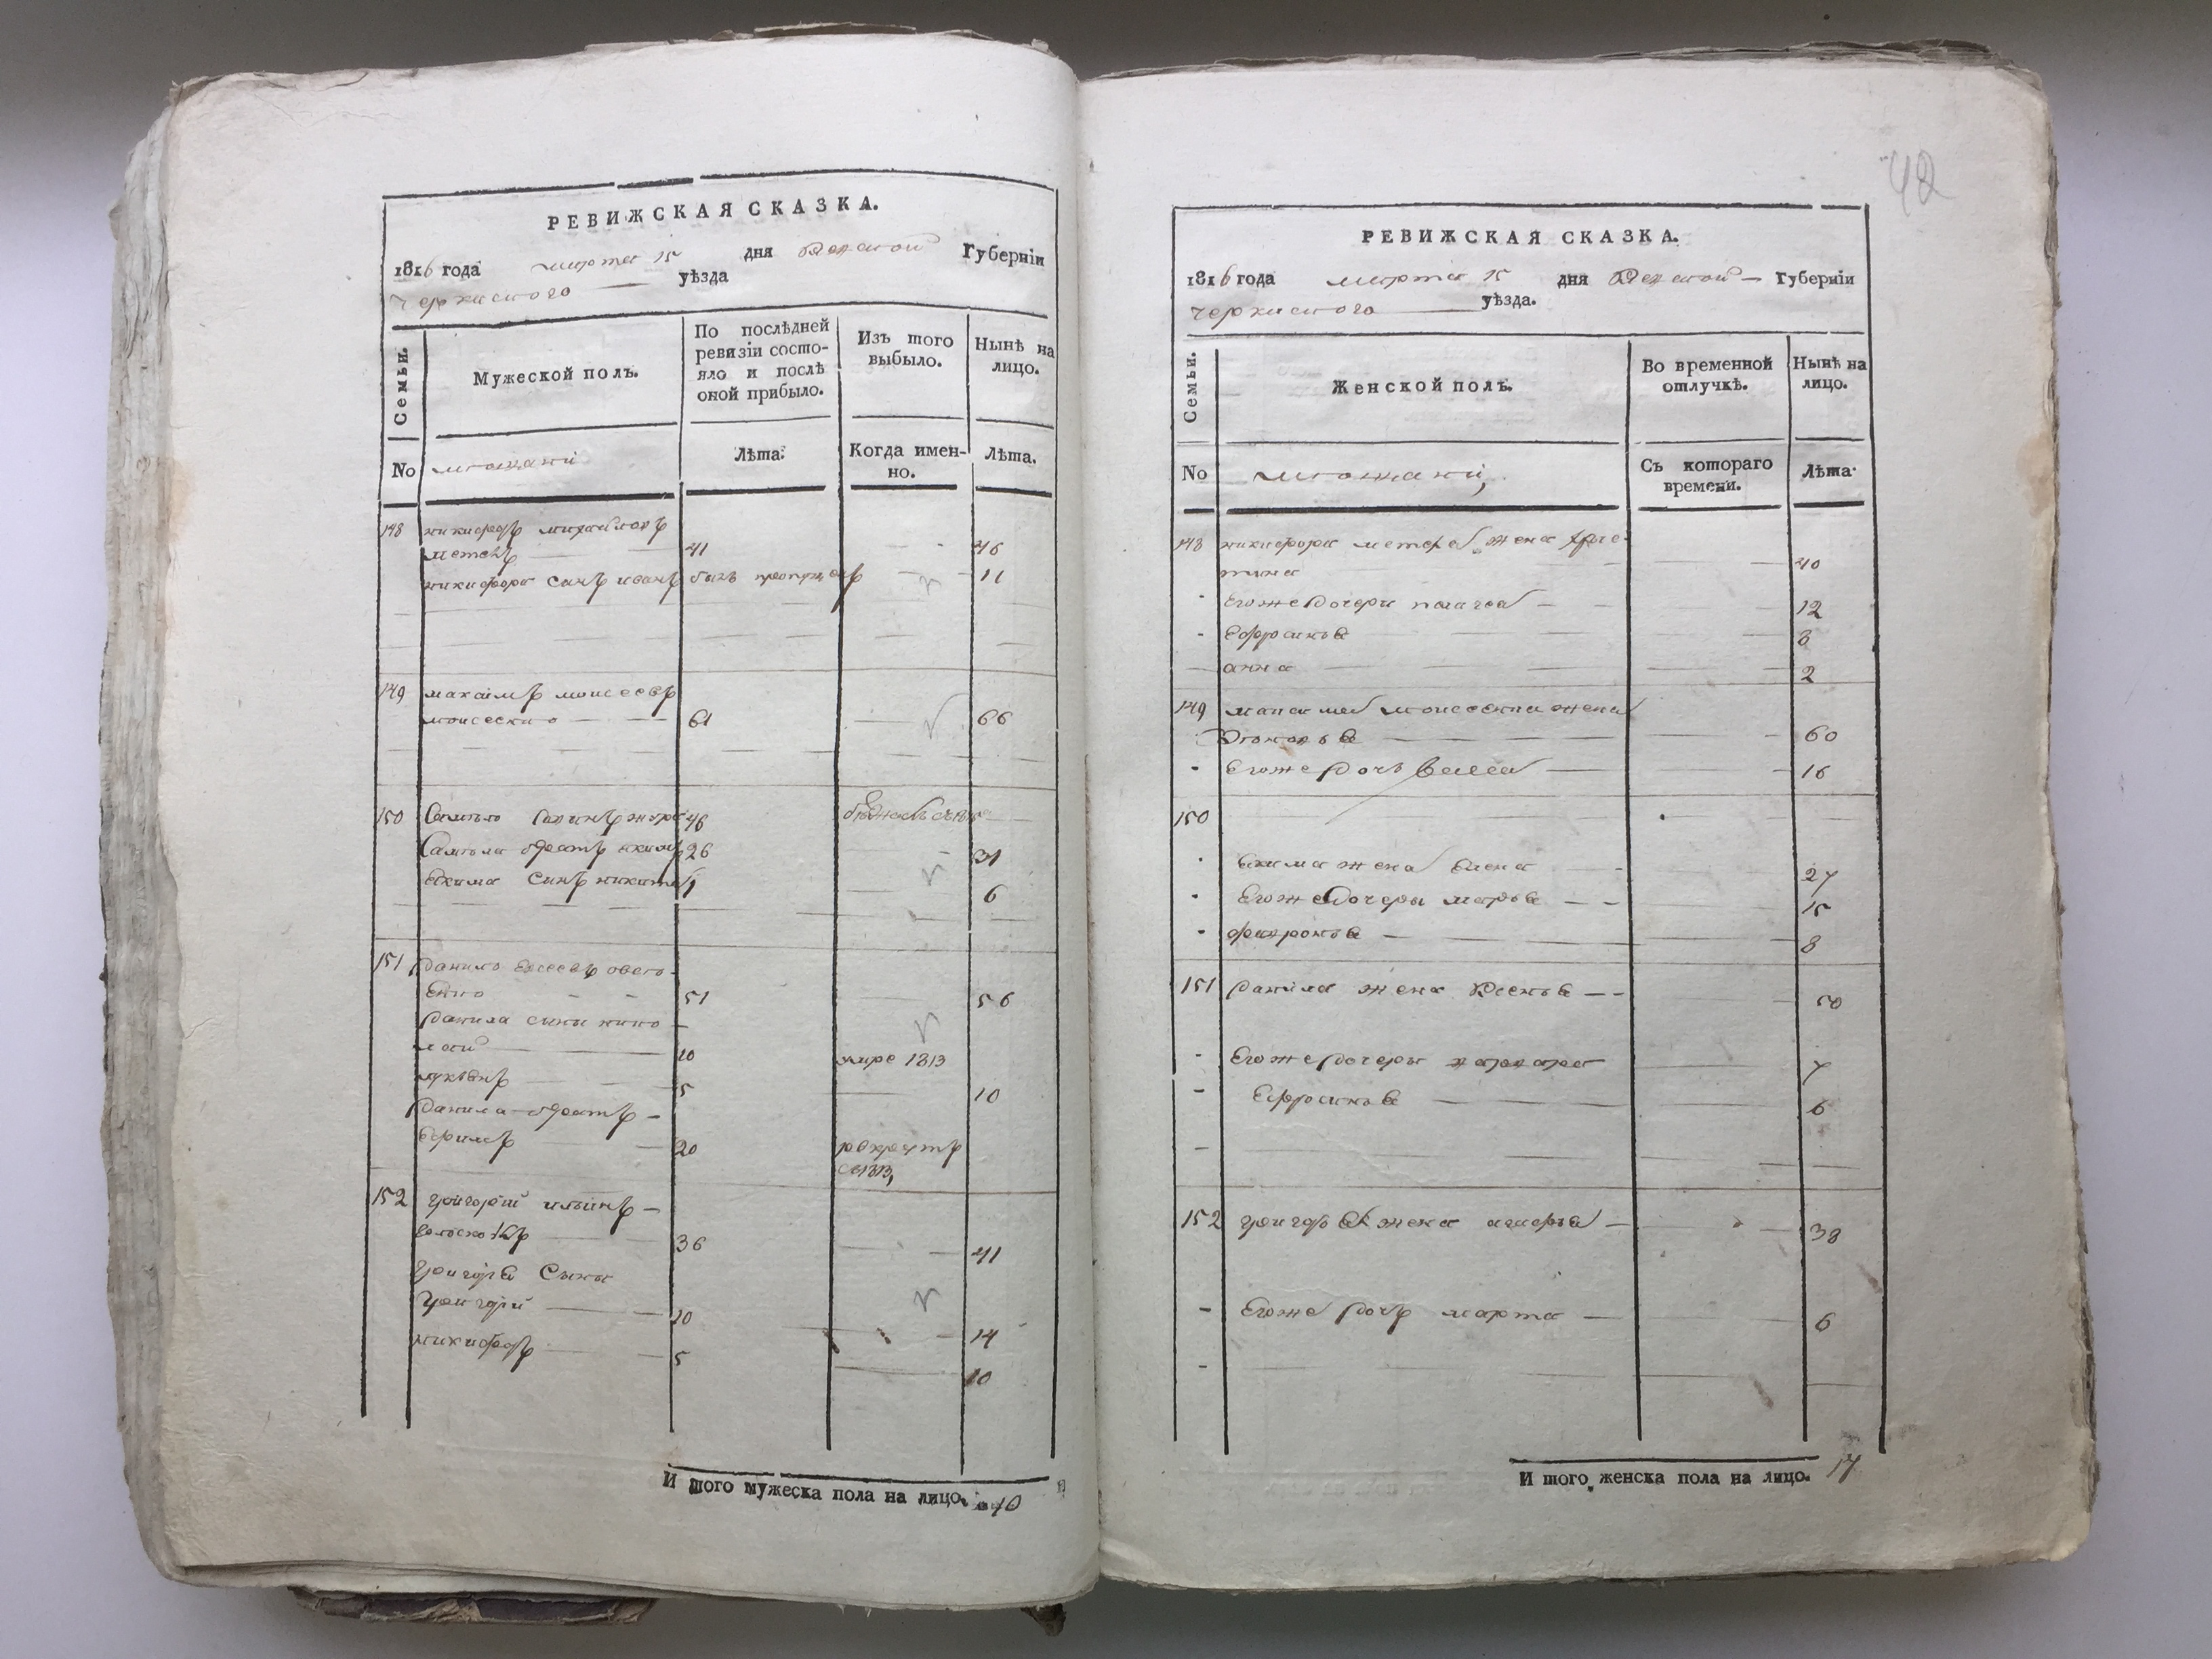 РЕВИЖСКАЯ СКАЗКА.
1816 года марта 15 дня Губерніи
Черкаского уѣзда
Семьи.
Мужеской полъ.
По послѣдней
ревизіи состо-
яло и послѣ
оной прибыло.
Изъ того
выбыло.
Нынѣ на
лицо.
No мещани
Лѣта.
Когда имен-
но.
Лѣта.
148 никифоръ михайловъ
41 46
никифора синъ иванъ былъ пропущенъ 11
149 максимъ моисеевъ
моисеенко 61 66
150 46
Самойла братъ екимъ 26 31
Екима синъ никита 1 6
151 данило
51 56
данила сыны нико
лай 10 умре 1813
лукъянъ 5 10
данила братъ
Ефимъ 20 рекрутъ
152 григорій ильинъ
36 41
григорія Сыны
григорій 10 14
никифоръ 5 10
И того мужеска пола на лицо. 10
42
РЕВИЖСКАЯ СКАЗКА.
1816 года марта 15 дня Губерніи
Черкаского уѣзда.
Семьи.
Женской полъ.
Во временной
отлучкѣ.
Нынѣ на
лицо.
No мещани,
Съ котораго
времени.
Лѣта.
148 никифора жена хрис
тина 40
Егоже дочери 12
Ефросинья 8
анна 2
149 максима моисеенка жена
60
Егоже дочь 16
150
Екима жена Елена 27
Егоже дочеры марья 15
8
151 данила жена 50
Егоже дочеры варвара 7
Ефросинья 6
152 григорья жена 38
Егоже дочъ марта 6
И того женска пола на лицо. 14